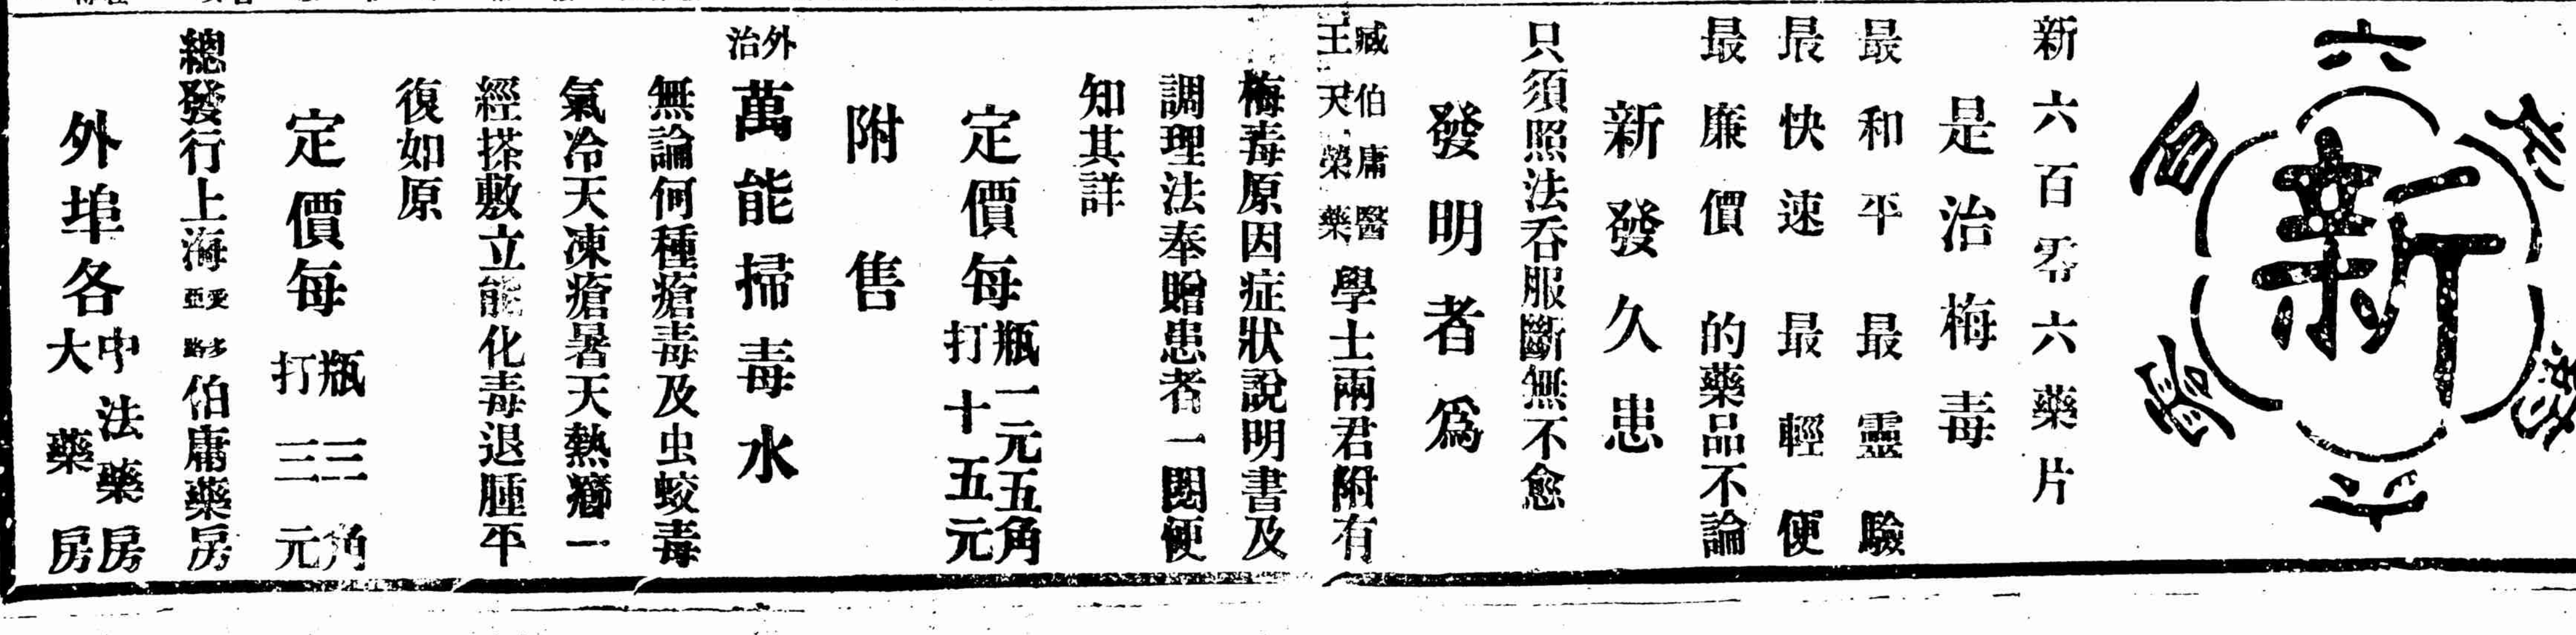 六
百
零
六
新
新六百零六藥片
是治梅毒
最和平最靈驗
最快速最輕便
最廉價的藥品不論
新發久患
只須照法吞服斷無不愈
發明者爲
臧伯庸醫
王天榮藥
學士兩君附有
梅毒原因症狀說明書及
調理法奉贈患者一閱便
知其詳
定價每
瓶一元五角
打十五元
附售
外治
萬能掃毒水
無論何種瘡毒及虫蛟毒
氣冷天凍瘡暑天熱癤一
經搽敷立能化毒退腫平
復如原
定價每
瓶三角
打三元
總發行上海
愛多
亞路
伯庸藥房
外埠各
中法藥房
大藥房